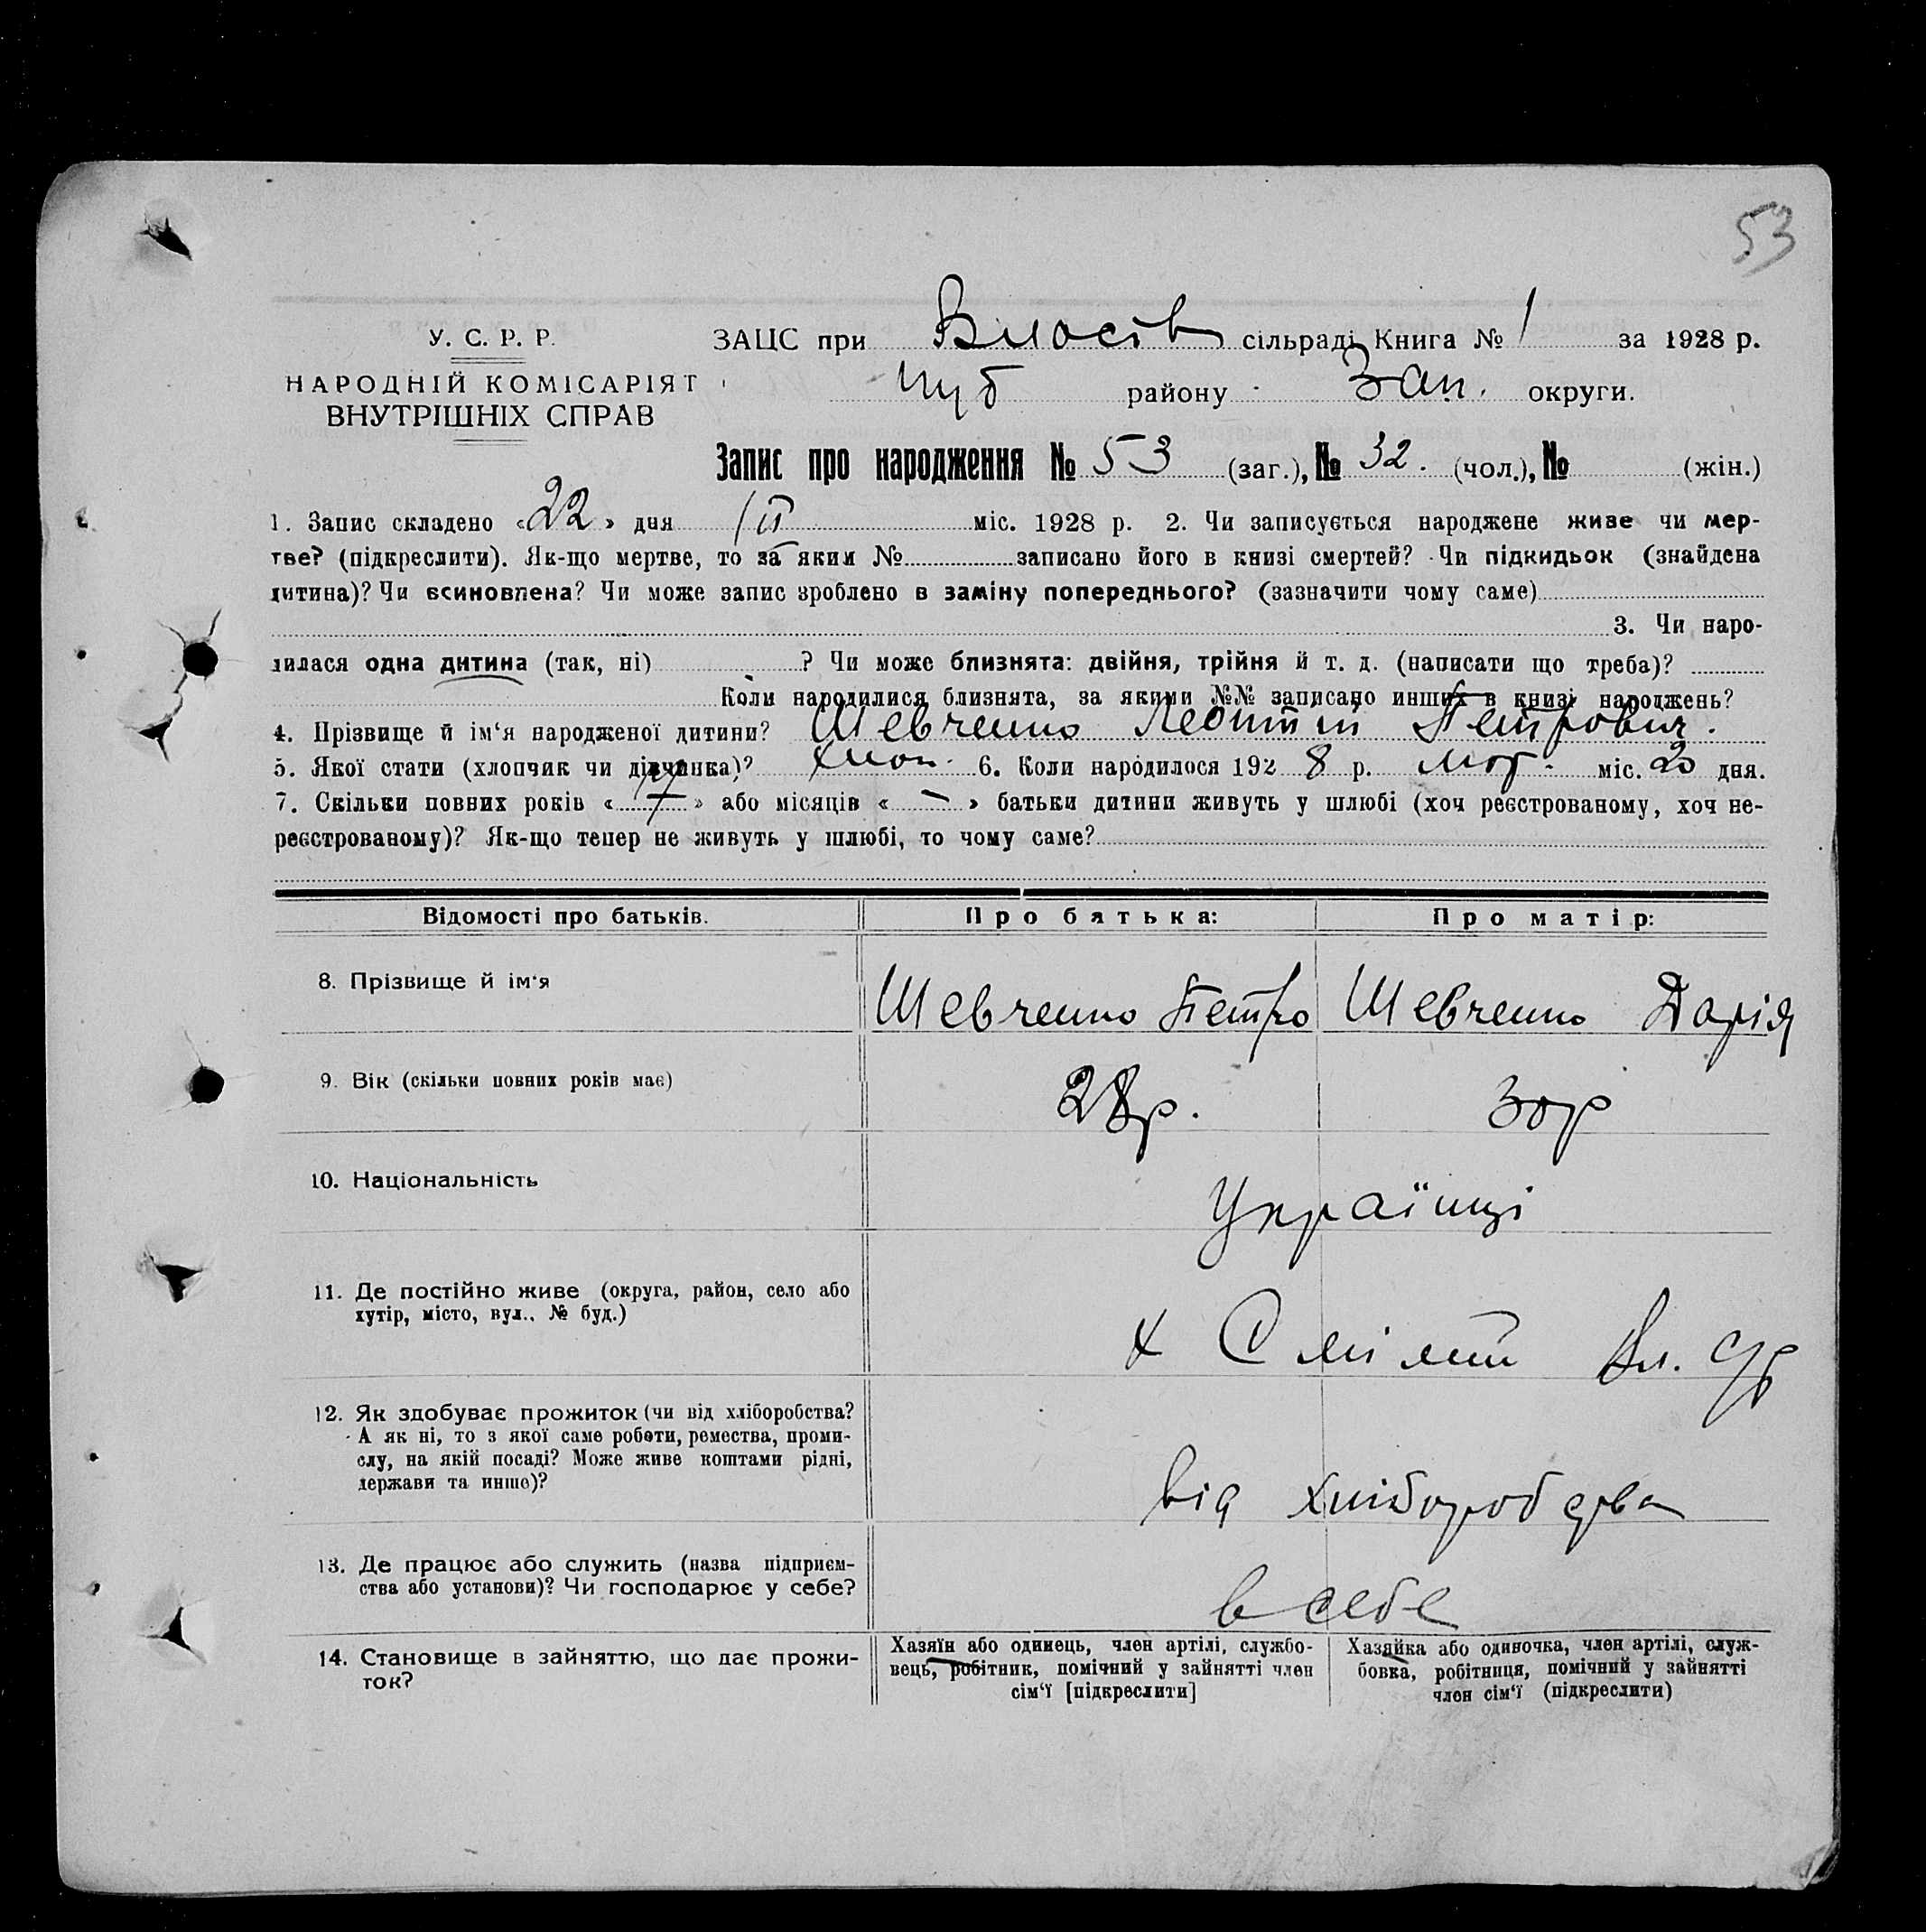 53
У. С. Р. Р.
НАРОДНІЙ КОМІСАРІЯТ
ВНУТРІШНІХ СПРАВ
ЗАЦС при Власів сільраді Книга № 1 за 1928 р.
Чуб району Зап. округи.
Запис про народження № 53 (заг.), № 32. (чол.), № (жін.)
1. Запис складено «22» дня міс. 1928 р. 2. Чи записується народжене живе чи мер-
тве? (підкреслити). Як-що мертве, то за яким № записано його в книзі смертей? Чи підкидьок (знайдена
дитина)? Чи всиновлена? Чи може запис зроблено в заміну попереднього? (зазначити чому саме)
3. Чи наро-
дилася одна дитина (так, ні) ? Чи може близнята: двійня, трійня й т. д. (написати що треба)?
Коли народилися близнята, за якими №№ записано инших в книзі народжень?
4. Прізвище й ім‘я народженої дитини? Шевченко Леонтій Петрович.
5. Якої стати (хлопчик чи дівчинка)? хлоп. 6. Коли народилося 1928 р. міс. 20 дня.
7. Скільки повних років «7» або місяців « — » батьки дитини живуть у шлюбі (хоч реєстрованому, хоч не-
реєстрованому)? Як-що тепер не живуть у шлюбі, то чому саме?
Відомості про батьків. Про батька: Про матір:
8. Прізвище й ім‘я Шевченко Петро Шевченко Дарія
9. Вік (скільки повних років має) 28р. 30р
10. Національність Українці
11. Де постійно живе (округа, район, село або
хутір, місто, вул., № буд.) х Смілий Вл. с/р
12. Як здобуває прожиток (чи від хліборобства?
А як ні, то з якої саме роботи, ремества, проми-
слу, на якій посаді? Може живе коштами рідні,
держави та инше)? від хліборобства
13. Де працює або служить (назва підприєм-
ства або установи)? Чи господарює у себе? в себе
14. Становище в зайняттю, що дає прожи-
ток?
Хазяїн або одинець, член артілі, службо-
вець, робітник, помічний у зайнятті член
сім‘ї [підкреслити]
Хазяйка або одиночка, член артілі, служ-
бовка, робітниця, помічний у зайнятті
член сім‘ї (підкреслити)